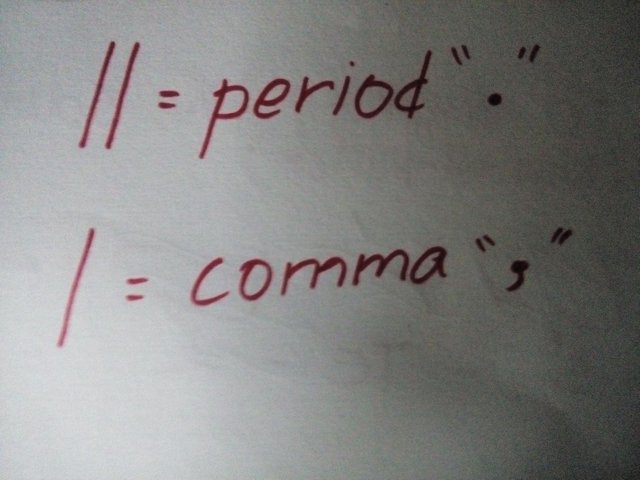 // = period "."
/ = comma ","